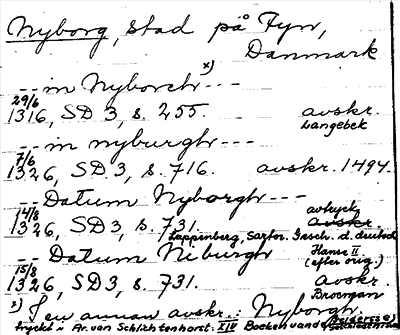 Nyborg, stad på Fyn,
Danmark
-- in Nyborch x) ---
29/6
1316, SD 3, s. 255. avskr.
Langebek
-- in nyburgh ---
7/6
1326, SD 3, s. 716. avskr. 1494.
-- Datum Nyborgh ---
14/8 avtryck
1326, SD 3, s. 731. avskr.
Lappenberg, Sartor. Gesch. d. deutsch
-- Datum Neburgh Hanse II
(efter orig.)
15/8
1326, SD 3, s. 731. avskr.
Broocman
x) I en annan avskr.: Nyborgh.
tryckt Ar. van Schlichtenhorst: XIV Boeken van de